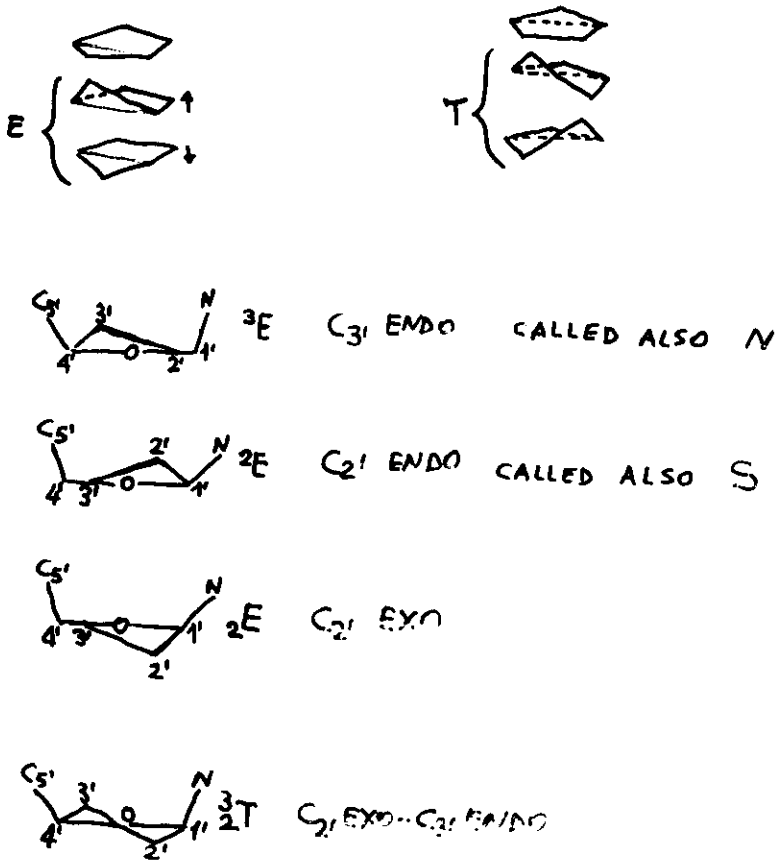 E T
C5' 3' N
4' O 2' 1' ³E C3' ENDO CALLED ALSO N
C5' 2' N
4' 3' O 1' ²E C2' ENDO CALLED ALSO S
C5' N
4' 3' O 1' ₂E C2' EXO
2'
C5' 3' N
4' O 1' ³₂T C2' EXO-C3' ENDO
2'